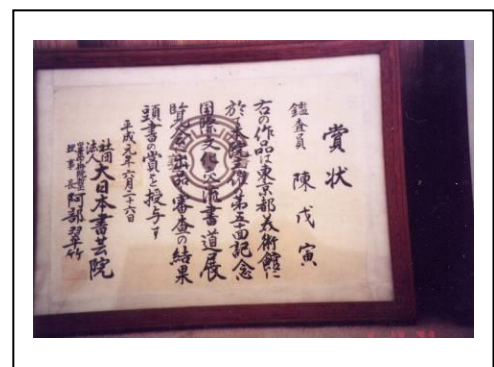 賞状
鑑査員 陳戊寅
右の作品は東京都美術館に
於て本院主催第五十回記念
国際文化交流書道展
覧会に出品審査の結果
頭書の賞を授与す
平成元年六月二十六日
社団法人 大日本書芸院
理事長 阿部翠竹